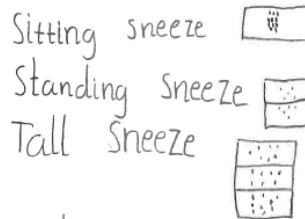 Sitting sneeze
Standing Sneeze
Tall Sneeze